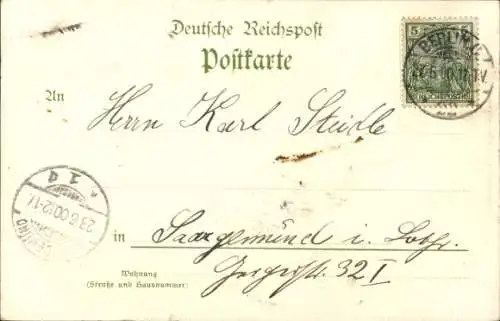 Deutsche Reichspost
Postkarte
5
BERLIN
REICHSPOST
An
Herrn Karl Steidle
23.6.00.12-1
in Saargemünd i. Lothr.
Geigerstr. 32 I
Wohnung
(Straße und Hausnummer)